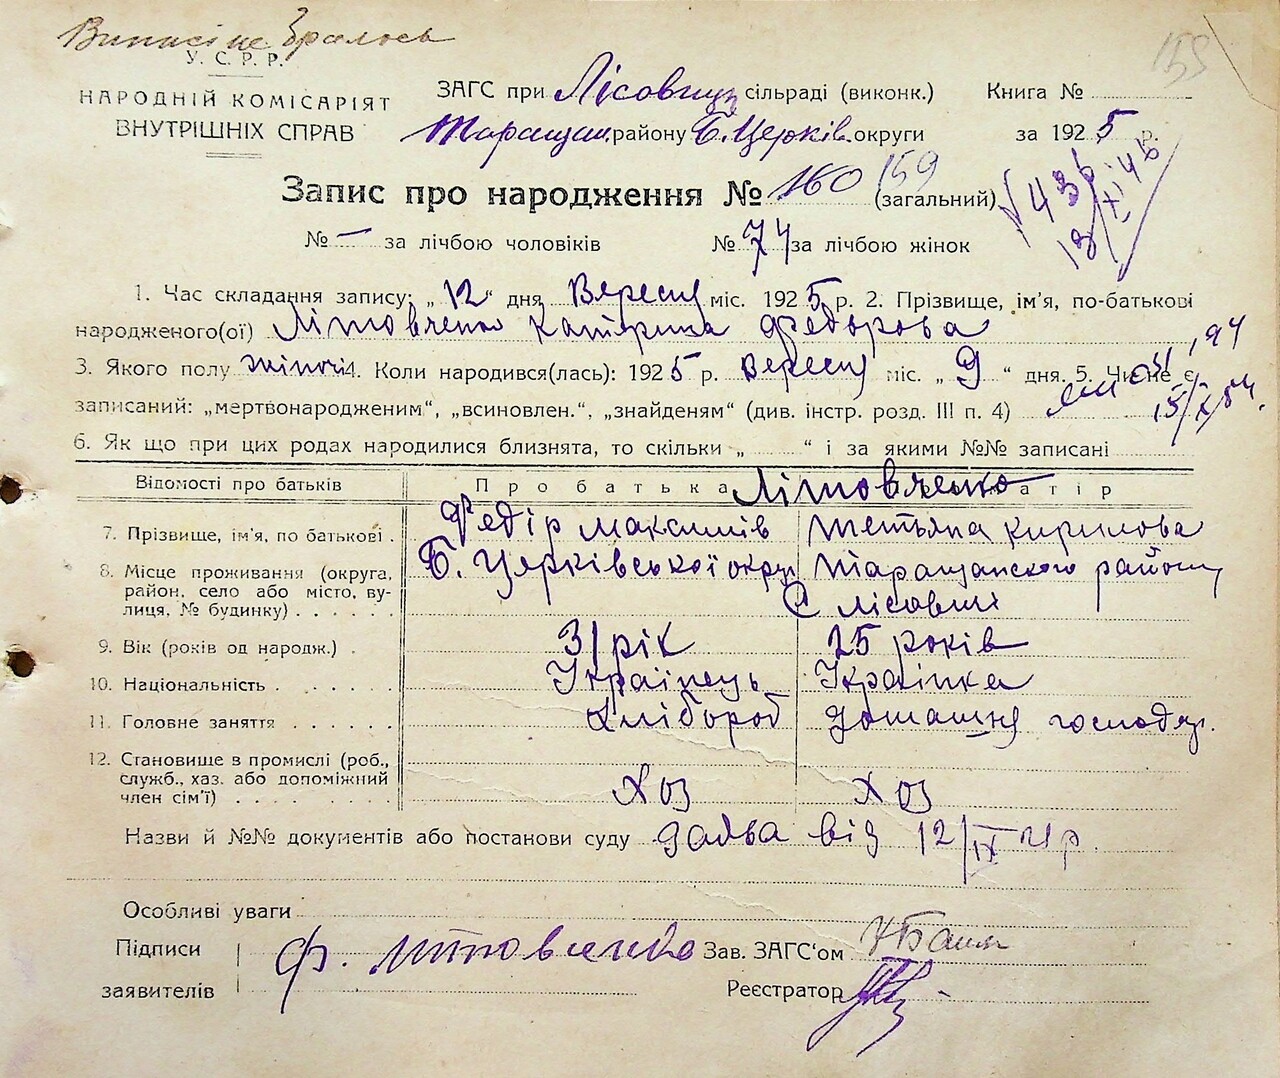 Виписі не бралось
159
У. С. Р. Р.
НАРОДНІЙ КОМІСАРІЯТ
ВНУТРІШНІХ СПРАВ
ЗАГС при Лісовицк сільраді (виконк.) Книга №
Таращан. району Б. Церків. округи за 1925 р.
Запис про народження № 160 159 (загальний)
№ — за лічбою чоловіків № 74 за лічбою жінок
1. Час складання запису: „12“ дня Вересня міс. 1925 р. 2. Прізвище, ім'я, по-батькові
народженого(ої) Літовченко Катерина Федорова
3. Якого полу жіночі 4. Коли народився(лась): 1925 р. вересня міс. „9“ дня. 5. Чи не є
записаний: „мертвонародженим“, „всиновлен.“, „знайденям“ (див. інстр. розд. III п. 4)
15/X 54.
6. Як що при цих родах народилися близнята, то скільки „ “ і за якими №№ записані
Відомості про батьків Про батька Літовченко матір
7. Прізвище, ім'я, по батькові . Федір Максимів Тетьяна Кирилова
8. Місце проживання (округа, район, село або місто, вулиця, № будинку) . . . . Б. Церківської окру Таращанского району
С Лісовичі
9. Вік (років од народж.) . 31 рік 25 років
10. Національність . . . . . . Українець Українка
11. Головне заняття . . . . . . Хлібороб домашня господар.
12. Становище в промислі (роб., служб., хаз. або допоміжний член сім'ї) . . . . . Хоз Хоз
Назви й №№ документів або постанови суду від 12/IX
Особливі уваги
Підписи
заявителів
Ф. Литовченко Зав. ЗАГС'ом
Реєстратор